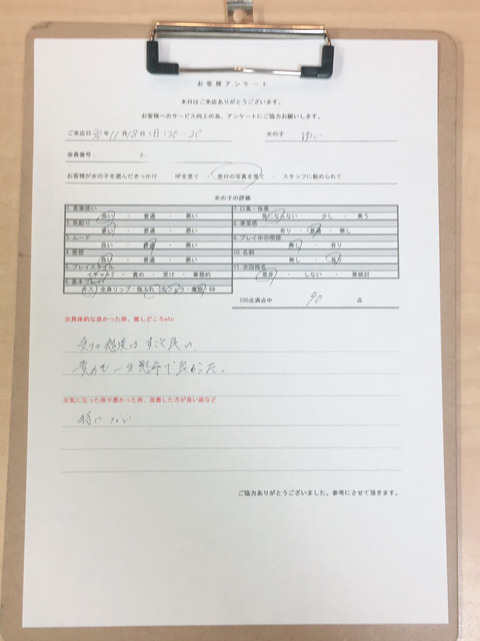 お客様アンケート
本日はご来店ありがとうございます。
お客様へのサービス向上の為、アンケートにご協力お願いします。
ご来店日 30年 11月 18日 女の子
会員番号:
お客様が女の子を選んだきっかけ HPを見て ・ 受付の写真を見て ・ スタッフに勧められて
女の子の評価
1. 言葉使い 7. 口臭・体臭
良い ・ 普通 ・ 悪い 気にならない ・ 少し ・ 臭う
2. 気配り 8. 清潔感
良い ・ 普通 ・ 悪い 有り ・ 普通 ・ 無し
3. ムード 9. プレイ中の喫煙
良い ・ 普通 ・ 悪い 無し ・ 有り
4. 愛想 10. 名刺
良い ・ 普通 ・ 悪い 無し ・ 有り
5. プレイスタイル 11. 次回指名
イチャイチャ ・ 責め ・ 受け ・ 事務的 する ・ しない ・ 要検討
6. 基本プレイ
キス・全身リップ・指入れ・生フェラ・素股・69
100点満点中 90 点
※具体的な良かった所、癒しどころetc
受付の態度はすごく良い。
一生懸命で良かった。
※気になった所や悪かった所、改善した方が良い面など
特にない
ご協力ありがとうございました。参考にさせて頂きます。